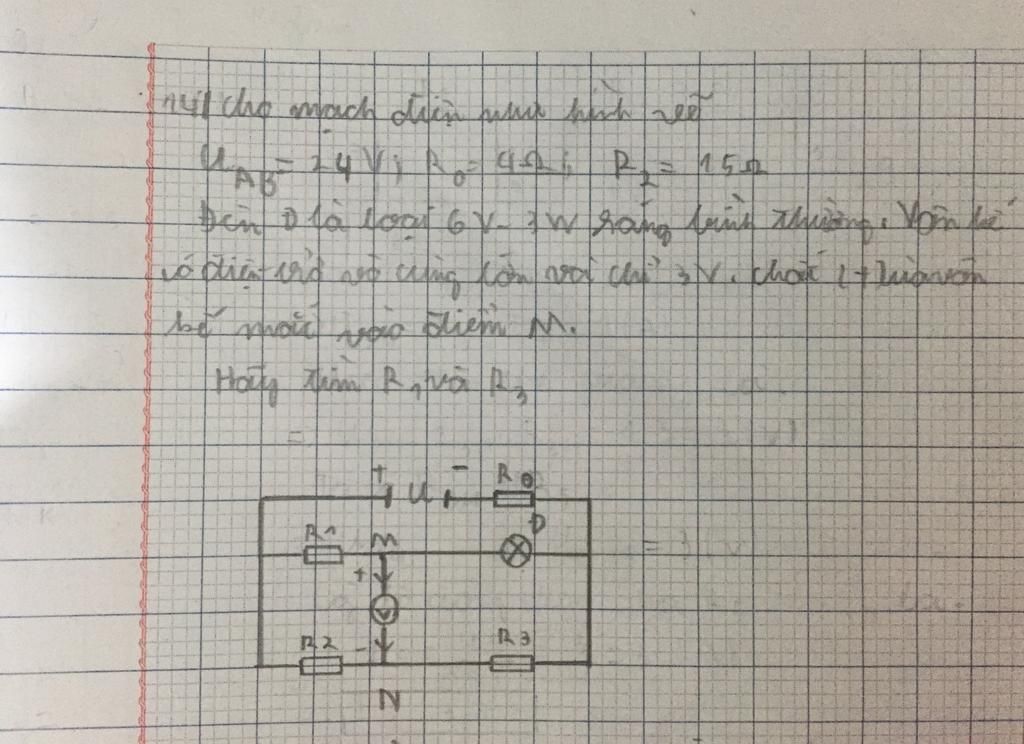 cho mạch điện như hình vẽ
U AB = 24 V; R0 = 4Ω; R2 = 15Ω
Đèn D là loại 6 V - 3 W sáng bình thường. Vôn kế
có điện trở vô cùng lớn và chỉ 3 V. chốt (+) của vôn
kế mắc vào điểm M.
Hãy tìm R1 và R3
+ U - R0
D
R1 M
+
V
R2 - R3
N